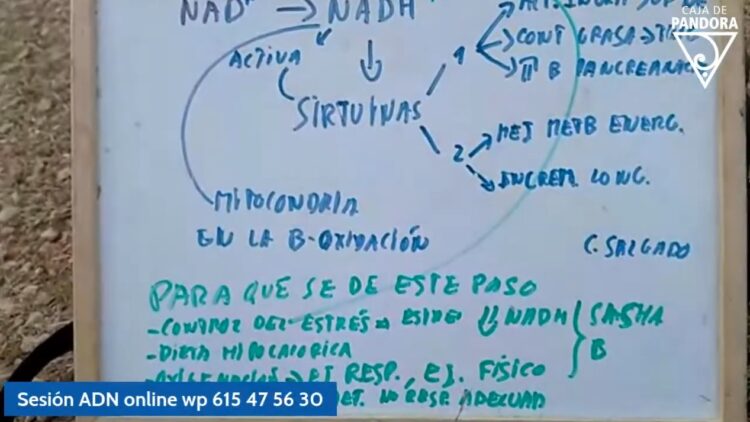 CAJA DE
PANDORA
NAD+ → NADH
ACTIVA
SIRTUINAS
1
→ CONT GRASA →
→ B PANCREATIC
2
→ MEJ METB ENERG.
→ INCREM. LONG.
MITOCONDRIA
EN LA B-OXIDACIÓN
C. SALGADO
PARA QUE SE DE ESTE PASO
- CONTROL DEL ESTRÉS → ESTRÉS ⇓ NADH
SASHA
B
- DIETA HIPOCALORICA
- OXIGENACIÓN → EJ RESP., EJ. FÍSICO
NO RESP. ADECUAD
Sesión ADN online wp 615 47 56 30